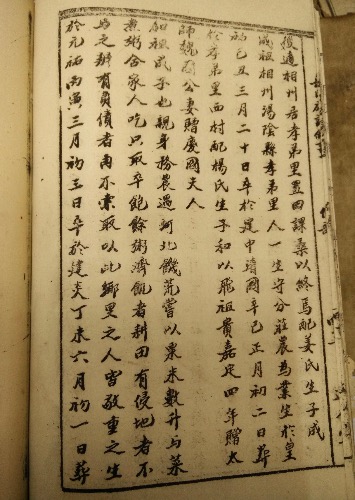 復適相州居孝弟里置田課桑以終焉配姜氏生子成
成祖相州湯陰縣孝弟里人一生守分莊農為業生於皇
祐己丑三月二十日卒於建中靖國辛巳正月初二日葬
於孝弟里西村配楊氏生子和以飛祖貴嘉定四年贈太
師魏國公妻贈慶國夫人
和祖成子也親身務農過河北饑荒嘗以粟米數升与菜
煮粥合家人吃只取卒飽餘粥濟飢者耕田有侵地者不
與之辦有負債者再不索取以此鄉里之人皆敬重之生
於元祐丙寅三月初五日卒於建炎丁未六月初一日葬